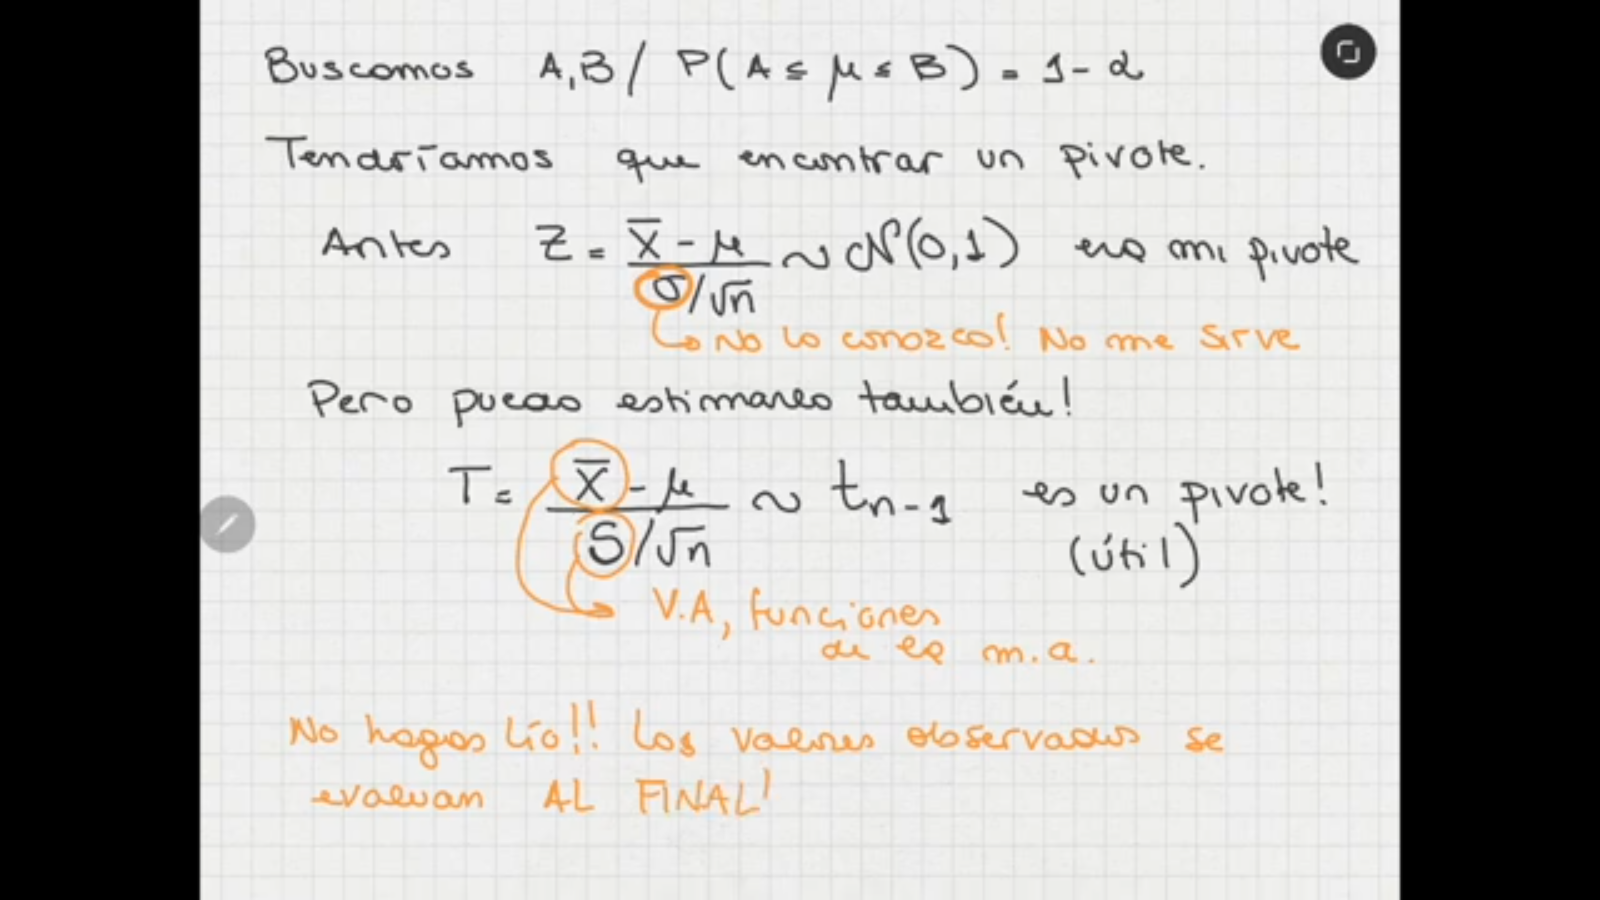 Buscamos A,B / P(A ≤ μ ≤ B) = 1-α
Tendríamos que encontrar un pivote.
Antes Z = (X̄ - μ)/(σ/√n) ~ N(0,1) era mi pivote
No lo conozco! No me sirve
Pero puedo estimarlo también!
T = (X̄ - μ)/(S/√n) ~ t n-1 es un pivote!
(útil)
V.A, funciones
de la m.a.
No hagas lío!! Los valores observados se
evaluan AL FINAL!